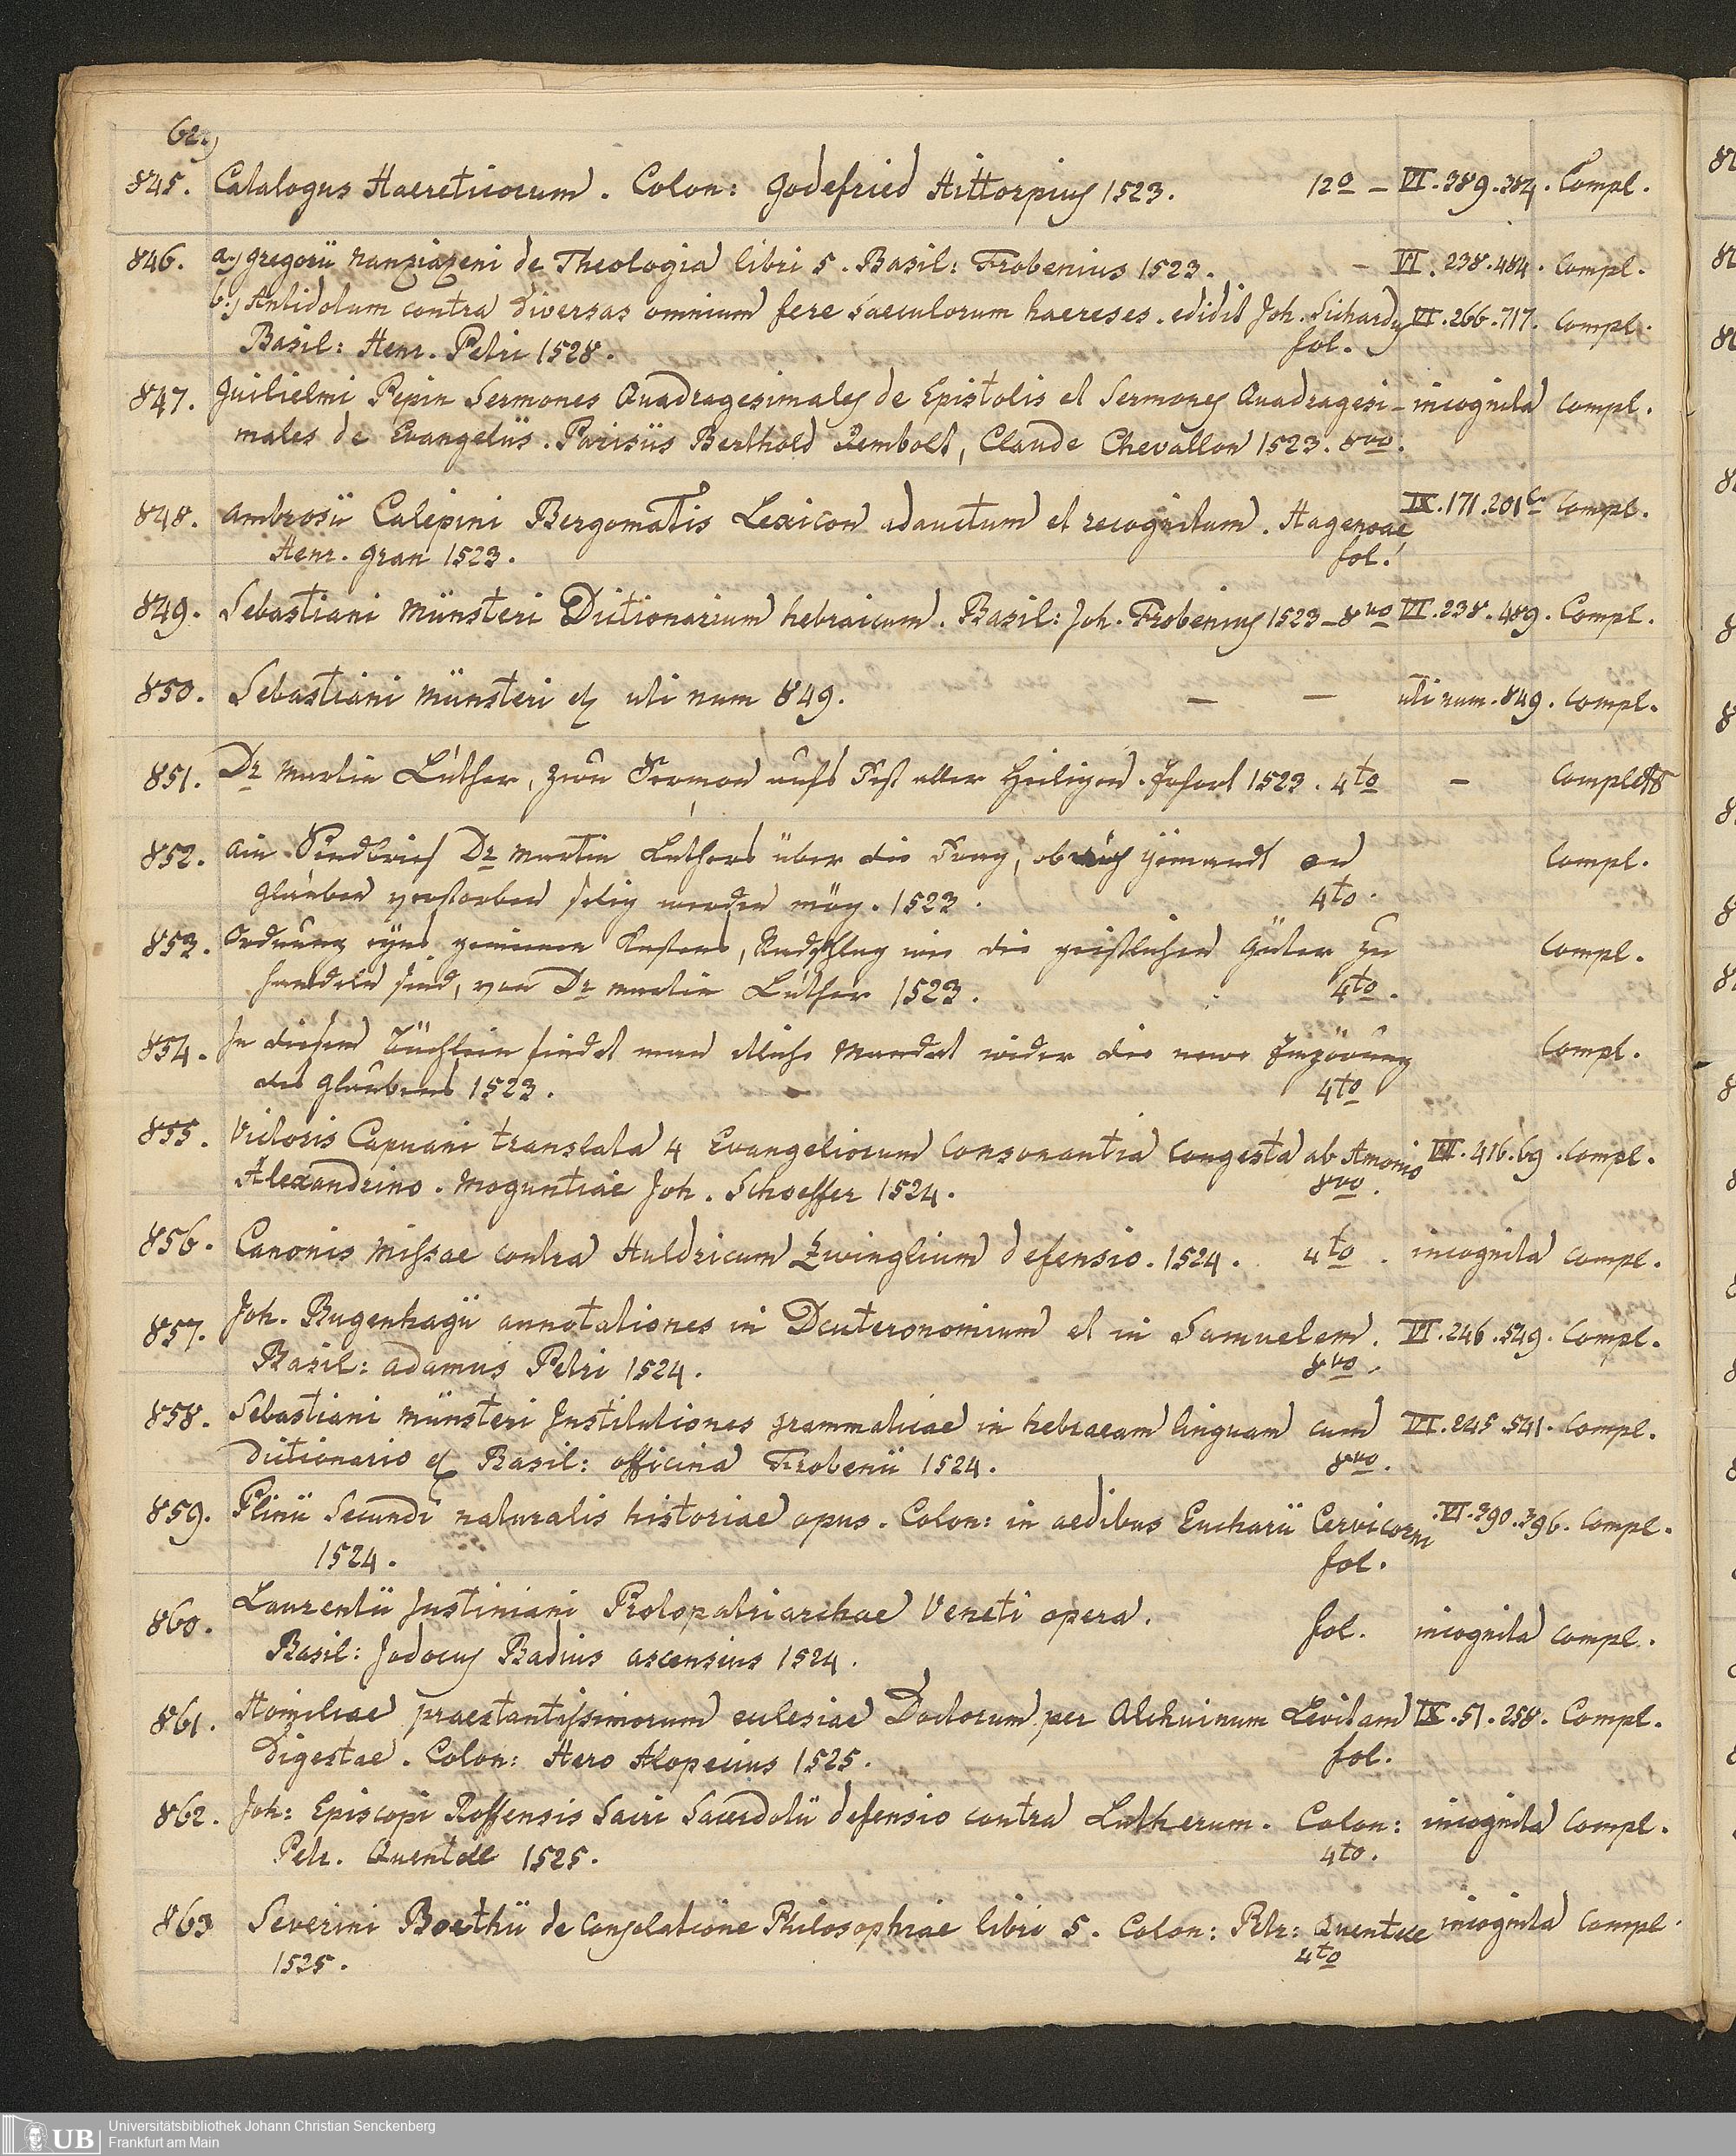 62.)
845. Catalogus Haereticorum. Colon: Godefried Hittorpius 1523. 12o – VI. 389. 384. Compl.
846. a.) Gregorii Nanziazeni de Theologia libri 5. Basil: Frobenius 1523. – VI. 238. 484. Compl.
b.) Antidotum contra diversas omnium fere Saeculorum haereses. edidit Joh. Sichardus VI. 266. 717. Compl.
Basil: Henr. Petri 1528. fol.
847. Guilielmi Pepin Sermones Quadragesimales de Epistolis et Sermones Quadragesi- incognita Compl.
males de Evangeliis. Parisiis Berthold Rembolt, Claude Chevallon 1523. 8vo.
848. Ambrosii Calepini Bergomatis Lexicon adauctum et recognitum. Hagenoae IX. 171. 201c Compl.
Henr. Gran 1523. fol.
849. Sebastiani Münsteri Dictionarium hebraicum. Basil: Joh. Frobenius 1523 – 8vo VI. 238. 489. Compl.
850. Sebastiani Münsteri etc uti num 849. – – uti num. 849. Compl.
851. Dr Martin Luther, zwen Sermon aufs Fest aller Heiligen. Erfort 1523. 4to – Complett
852. Ain Sendbrief Dr Martin Luthers über die Frag, ob auch yemandt on Compl.
Glauben verstorben selig werden mög. 1523. 4to.
853. Ordnung eyns gemeinen Kastens, Radschlag wie die geistlichen Güter zu Compl.
handeln sind, von Dr Martin Luther 1523. 4to.
854. In diesem Büchlein findet man etliche Mandat wider die newe Compl.
des Glaubens 1523. – 4to
855. Victoris Capuani translata 4 Evangeliorum Consonantia Congesta ab Amonio VII. 416. 69. Compl.
Alexandrino. Moguntiae Joh. Schoeffer 1524. 8vo.
856. Canonis Missae contra Huldricum Zwinglium defensio. 1524. 4to. incognita Compl.
857. Joh. Bugenhagii annotationes in Deuteronomium et in Samuelem. VI. 246. 549. Compl.
Basil: Adamus Petri 1524. 8vo.
858. Sebastiani Münsteri Institutiones grammaticae in hebraeam linguam cum VI. 245. 541. Compl.
dictionario etc Basil: officina Frobenii 1524. 8vo.
859. Plinii Secundi naturalis historiae opus. Colon: in aedibus Eucharii Cervicorni VI. 390. 396. Compl.
1524. fol.
860. Laurentii Justiniani Protopatriarchae Veneti opera. fol. incognita Compl.
Basil: Jodocus Badius ascensius 1524.
861. Homiliae praestantissimorum eclesiae Doctorum per Alchuinum Levitam IX. 51. 258. Compl.
Digestae. Colon: Hero Alopecius 1525. fol.
862. Joh: Episcopi Roffensis Sacri Sacerdotii defensio contra Lutherum. Colon: incognita Compl.
Petr. Quentell 1525. 4to.
863 Severini Boethii de Consolatione Philosophiae libri 5. Colon: Petr: Quentell incognita Compl.
1525. 4to
UB Universitätsbibliothek Johann Christian Senckenberg
Frankfurt am Main